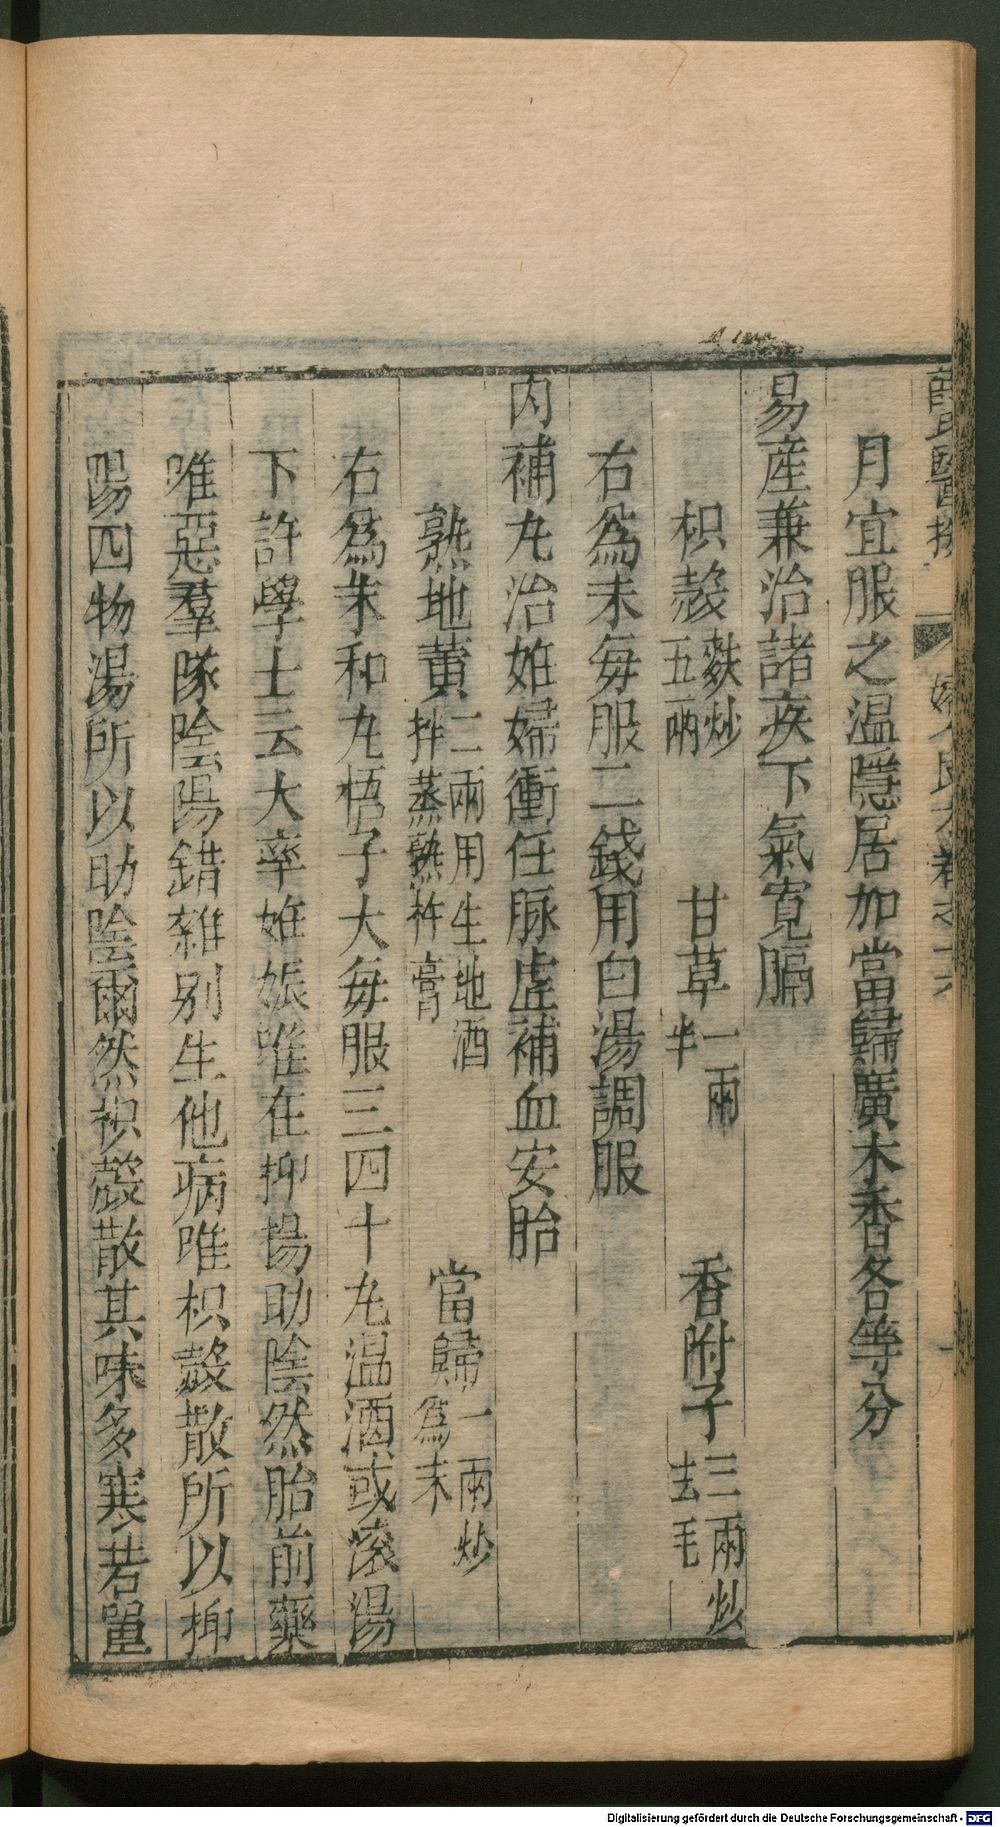 薛氏醫按 婦人良方卷之十六
月宜服之温隱居加當歸廣木香各等分
易産兼治諸疾下氣寛膈
枳殼麩炒五兩 甘草一兩半 香附子三兩炒去毛
右爲末每服二錢用白湯調服
内補丸治姙婦衝任脉虚補血安胎
熟地黄二兩用生地酒拌蒸熟杵膏 當歸一兩炒爲末
右爲末和丸梧子大每服三四十丸温酒或滚湯
下許學士云大率姙娠唯在抑揚助陰然胎前藥
唯惡羣隊陰陽錯雜别生他病唯枳殼散所以抑
陽四物湯所以助陰爾然枳殼散其味多寒若單
Digitalisierung gefördert durch die Deutsche Forschungsgemeinschaft - DFG